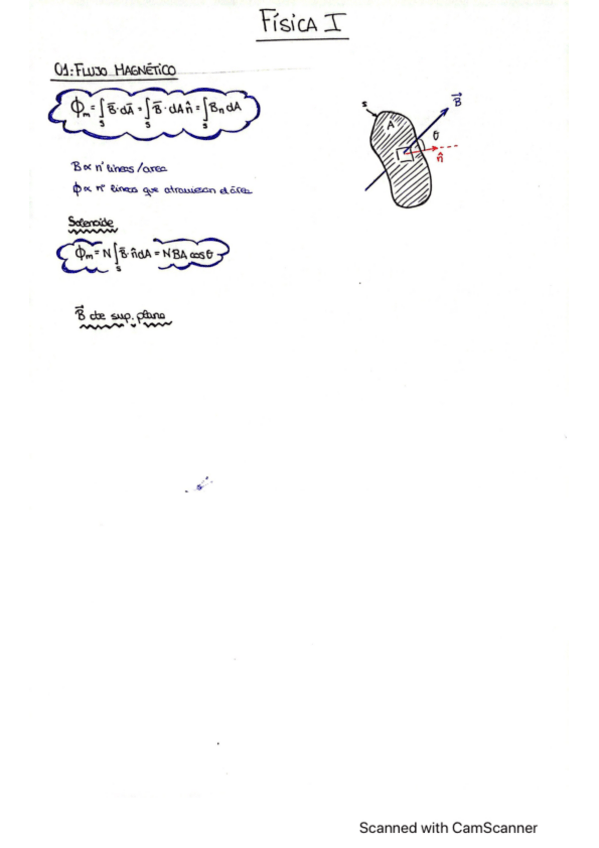 FÍSICA I
01: FLUJO MAGNÉTICO
ϕm = ∫s B̄·dĀ = ∫s B̄·dA n̂ = ∫s Bn dA
S
A
B⃗
θ
n̂
B ∝ nº lineas/area
ϕ ∝ nº lineas que atraviesan el área
Solenoide
ϕm = N ∫s B̄·n̂ dA = NBA cosθ
B⃗ de sup. plana
Scanned with CamScanner